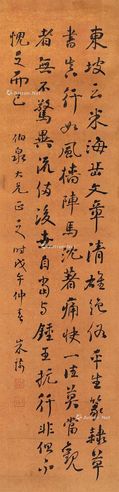 東坡云米海岳文章清雄絕俗平生篆隸草
書真行如風檣陣馬沈著痛快一法莫當觀
者無不驚異流傳後世自當與鍾王抗行非但不
愧之而已
伯泉大兄正之時戊午仲春 朱琦